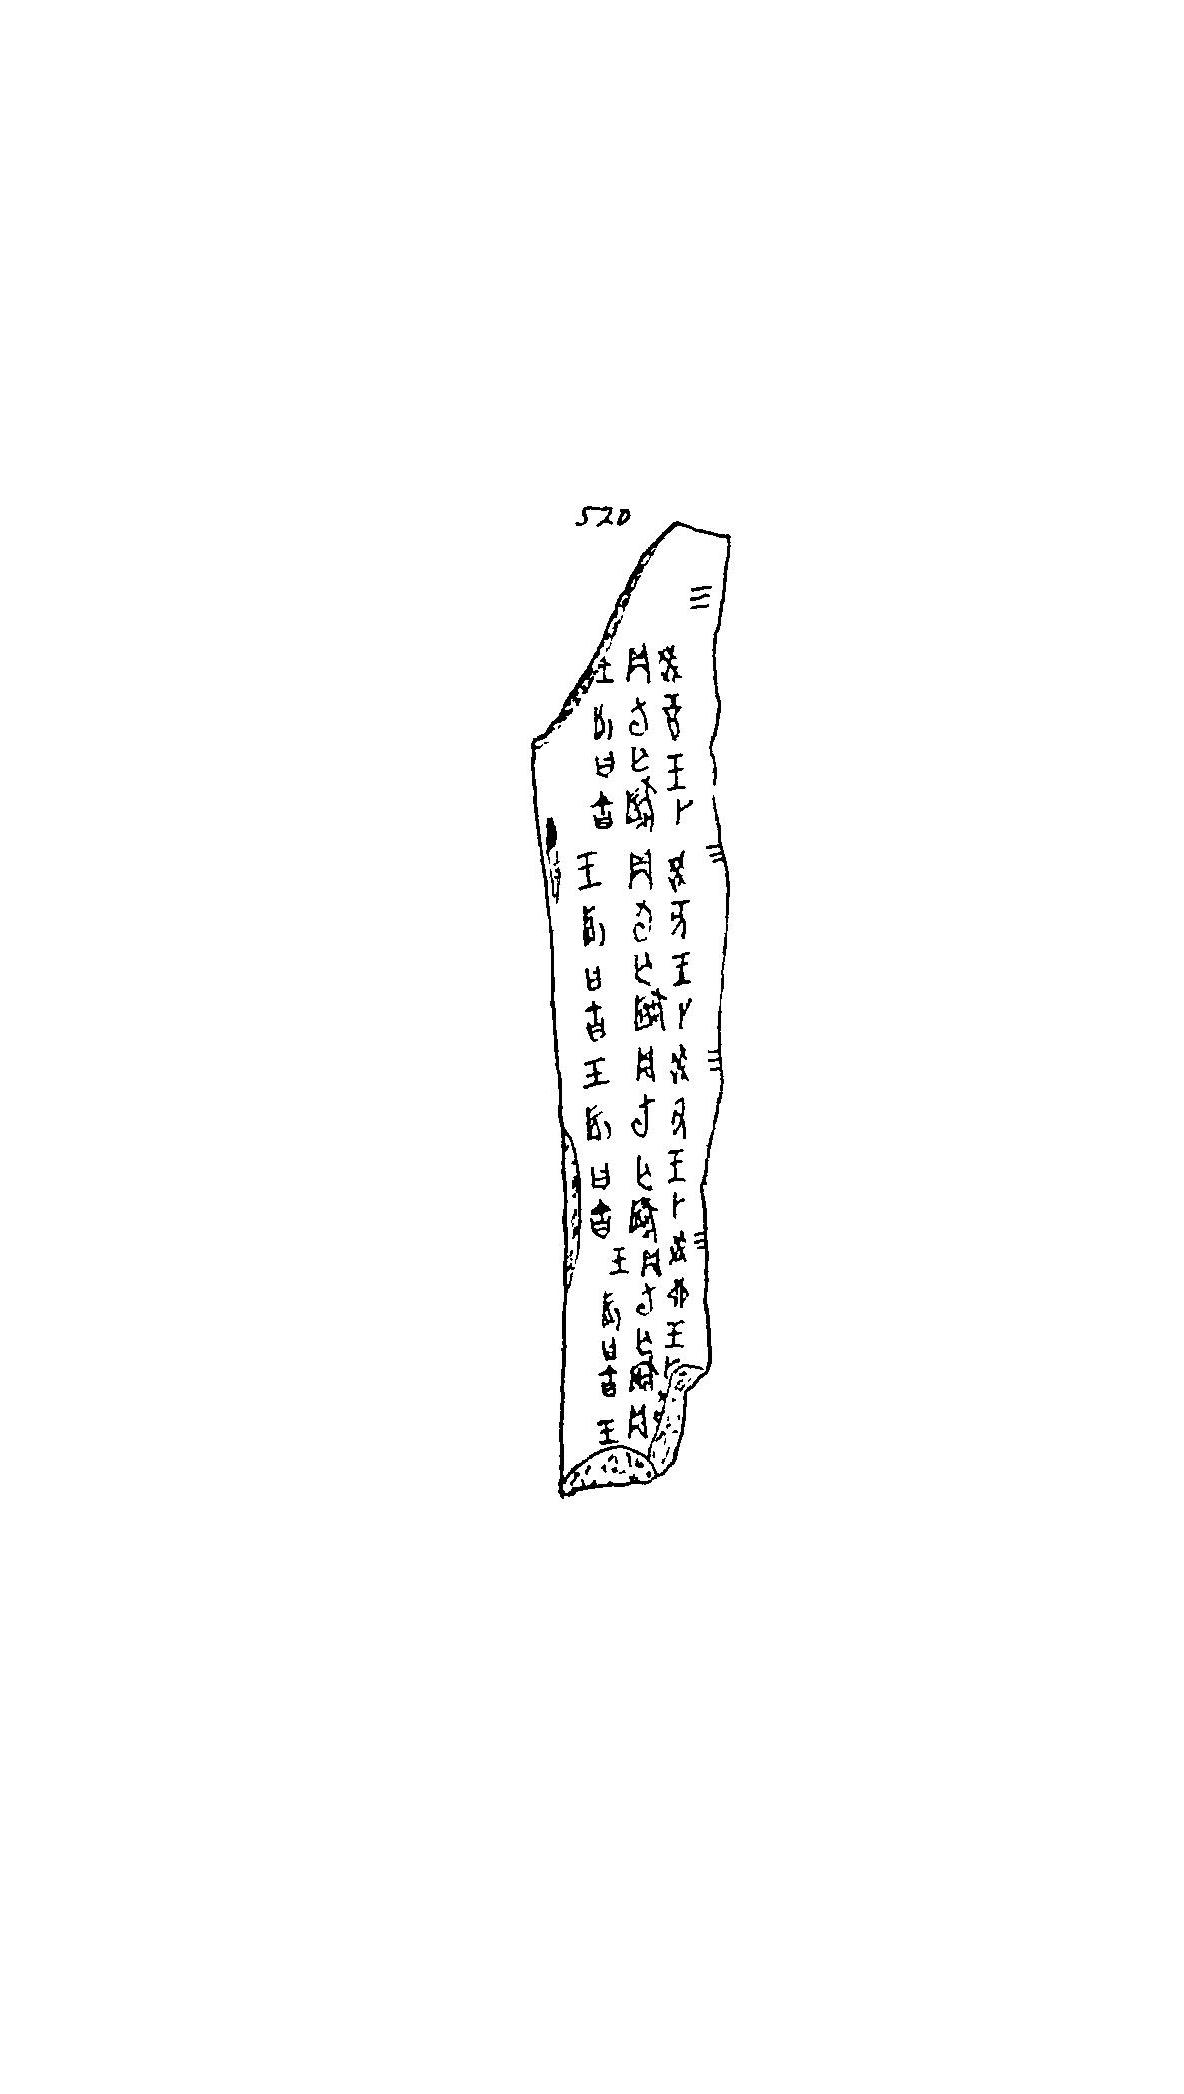 520
三
癸酉王卜
貞旬亡𡆥
王占曰吉
三
癸亥王卜
貞旬亡𡆥
王占曰吉
三
癸丑王卜
貞旬亡𡆥
王占曰吉
三
癸卯王卜
貞旬亡𡆥
王占曰吉
貞
王